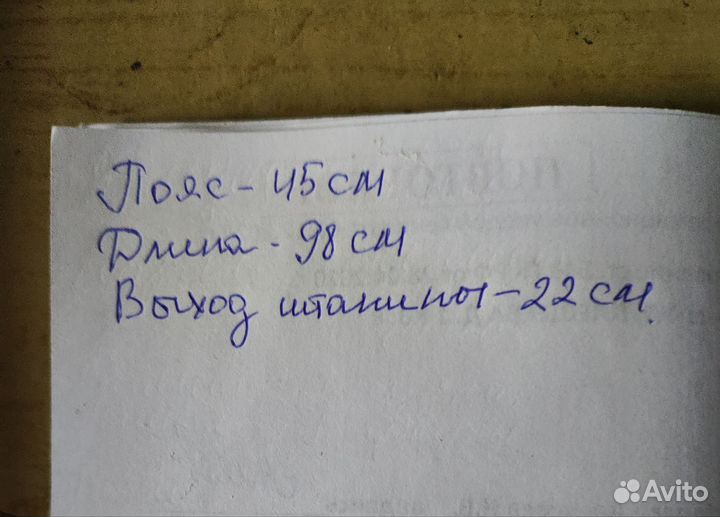 Пояс - 45 см
Длина - 98 см
Выход штанины - 22 см.
Avito